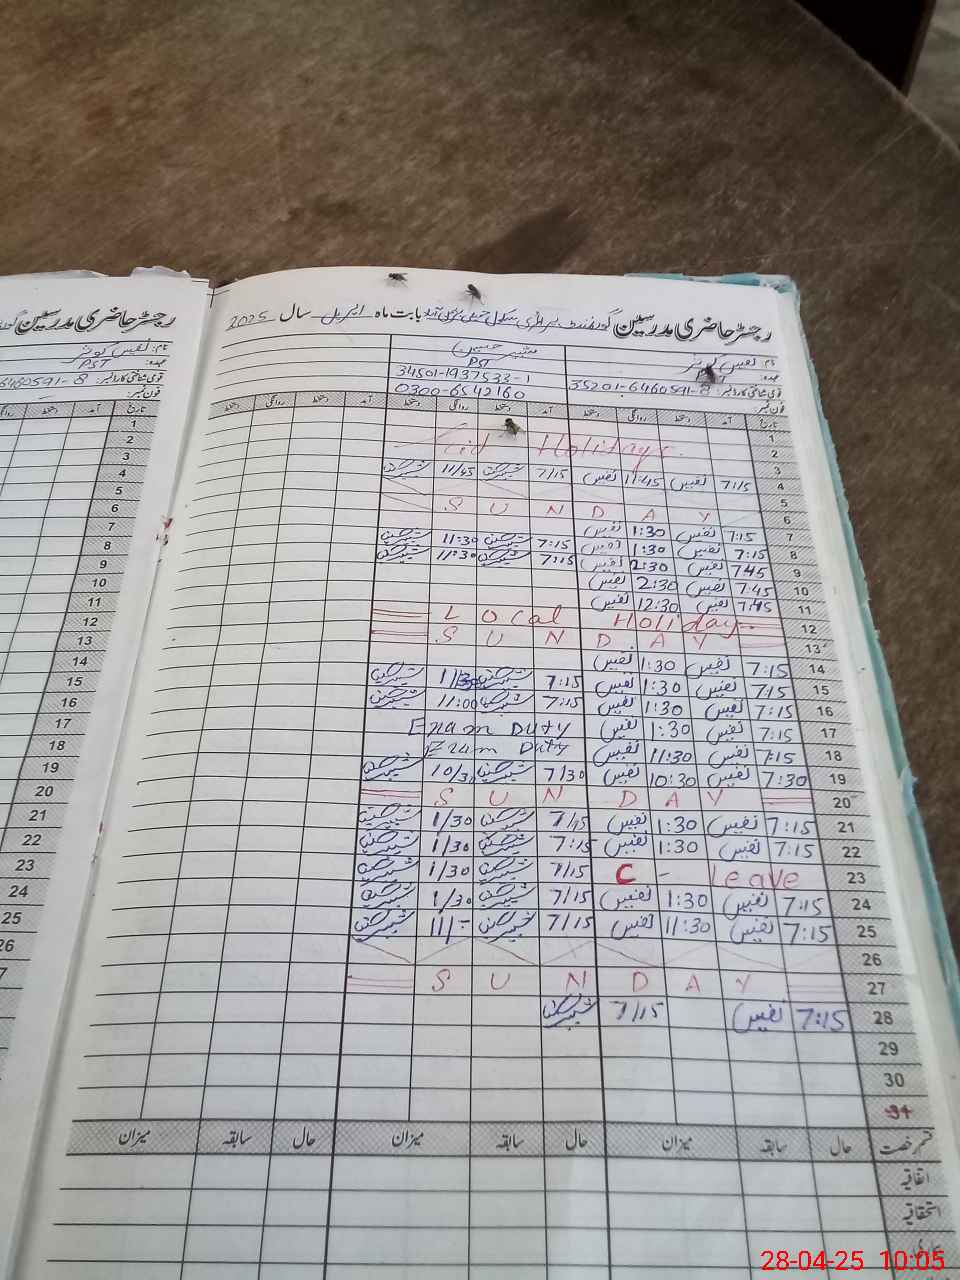 رجسٹر حاضری مدرسین گورنمنٹ پرائمری سکول بابت ماہ اپریل سال 2025
نام: نفیس کوثر شبیر حسین
عہدہ: PST PST
قومی شناختی کارڈ نمبر: 35201-6460591-8 34501-1937533-1
فون نمبر: 0300-6542160
تاریخ آمد دستخط روانگی دستخط آمد دستخط روانگی دستخط آمد دستخط روانگی دستخط
1
2 Eid Holidays.
3
4 7:15 نفیس 11:45 نفیس 7/15 11/45
5
6 SUNDAY
7 7:15 نفیس 1:30 نفیس
8 7:15 نفیس 1:30 نفیس 7:15 11:30
9 7:45 نفیس 2:30 نفیس 7:15 11:30
10 7:45 نفیس 2:30 نفیس
11 7:45 نفیس 12:30 نفیس
12 Local Holiday..
13 SUNDAY
14 7:15 نفیس 1:30 نفیس
15 7:15 نفیس 1:30 نفیس 7:15
16 7:15 نفیس 1:30 نفیس 7:15 11:00
17 7:15 نفیس 1:30 نفیس Exam Duty
18 7:15 نفیس 11:30 نفیس Exam Duty
19 7:30 نفیس 10:30 نفیس 7/30 10/30
20 SUNDAY
21 7:15 نفیس 1:30 نفیس 7/15 1/30
22 7:15 نفیس 1:30 نفیس 7:15 1/30
23 C - leave 7/15 1/30
24 7:15 نفیس 1:30 نفیس 7/15 1/30
25 7:15 نفیس 11:30 نفیس 7/15 11/-
26
27 SUNDAY
28 7:15 نفیس 7/15
29
30
31
قسم رخصت حال سابقہ میزان حال سابقہ میزان حال سابقہ میزان
اتفاقیہ
استحقاقیہ
رجسٹر حاضری مدرسین
نام: نفیس کوثر
عہدہ: PST
قومی شناختی کارڈ نمبر: 6460591-8
فون نمبر:
تاریخ آمد دستخط
1
2
3
4
5
6
7
8
9
10
11
12
13
14
15
16
17
18
19
20
21
22
23
24
25
26
28-04-25 10:05